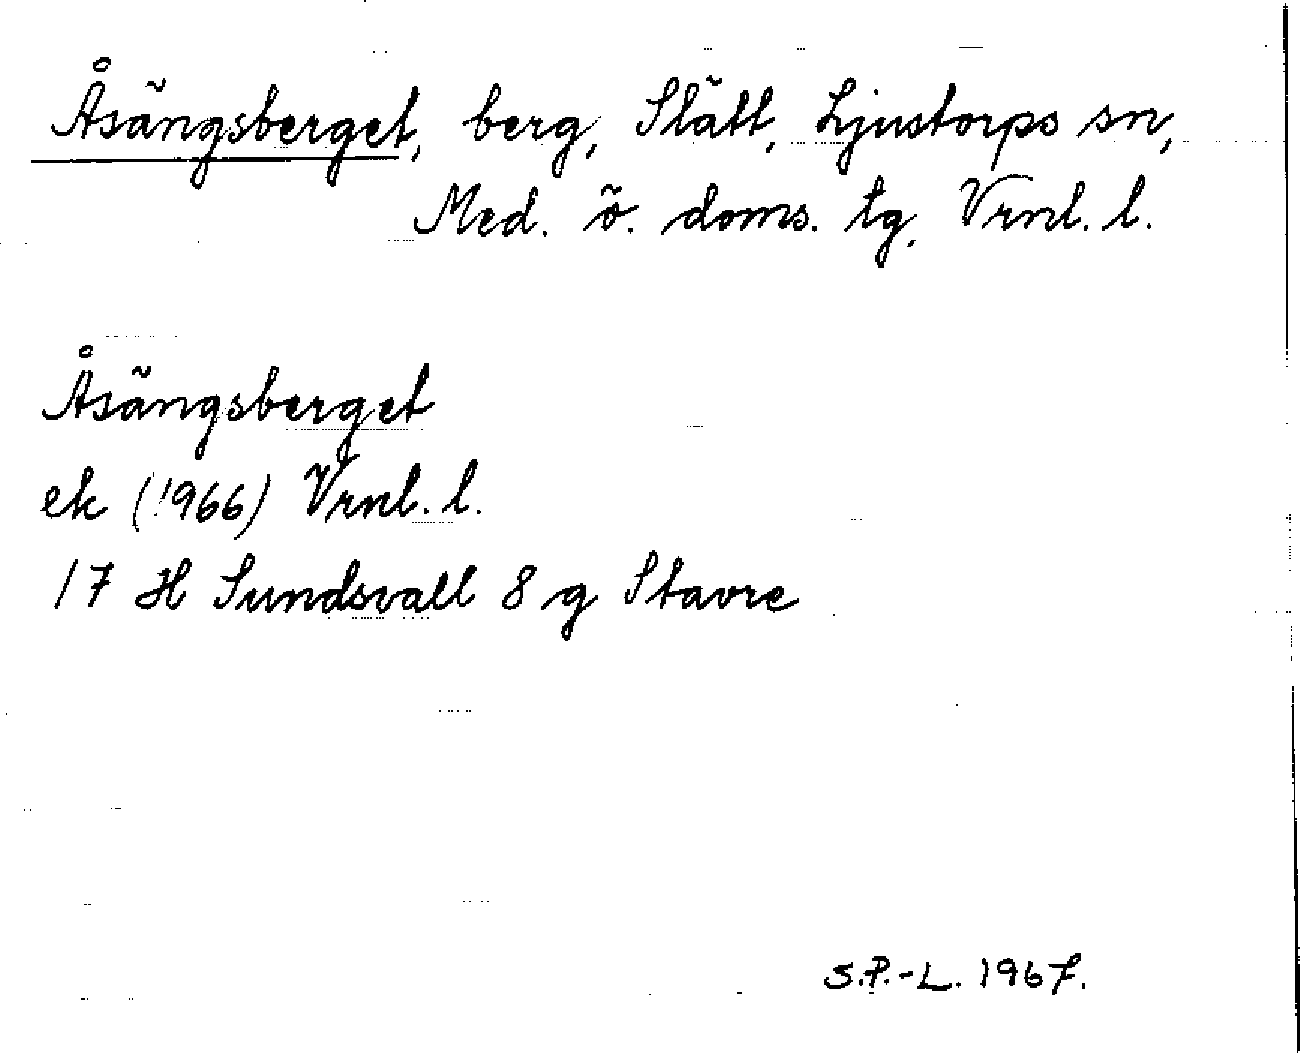 Åsängsberget, berg, Slätt, Ljustorps sn,
Med. ö. doms. tg, Vrnl. l.
Åsängsberget
ek (1966) Vrnl. l.
17 H Sundsvall 8 g Stavre
S.P.-L. 1967.